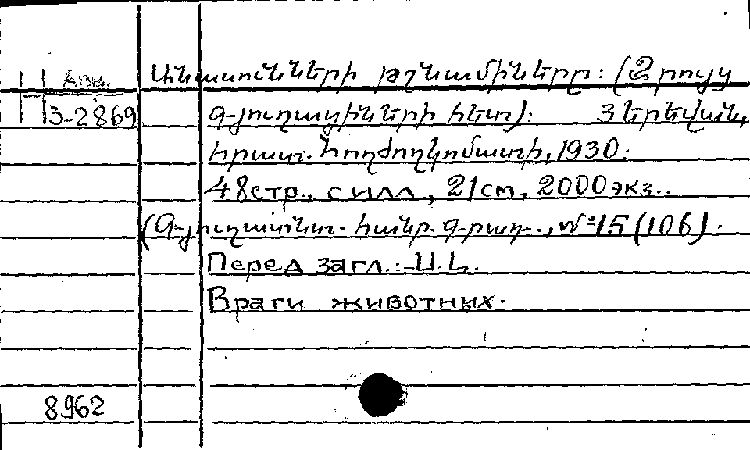 Арм. Անասունների թշնամիները: (Զրույց
Н 3-2869 գյուղացիների հետ): Յերեվան,
հրատ. Հողժողկոմատի, 1930.
48стр., с илл, 21см, 2000экз..
(Գյուղատնտ. հանր. գրադ., №15 (106).
Перед загл.: Ա.Լ.
Враги животных.
8962